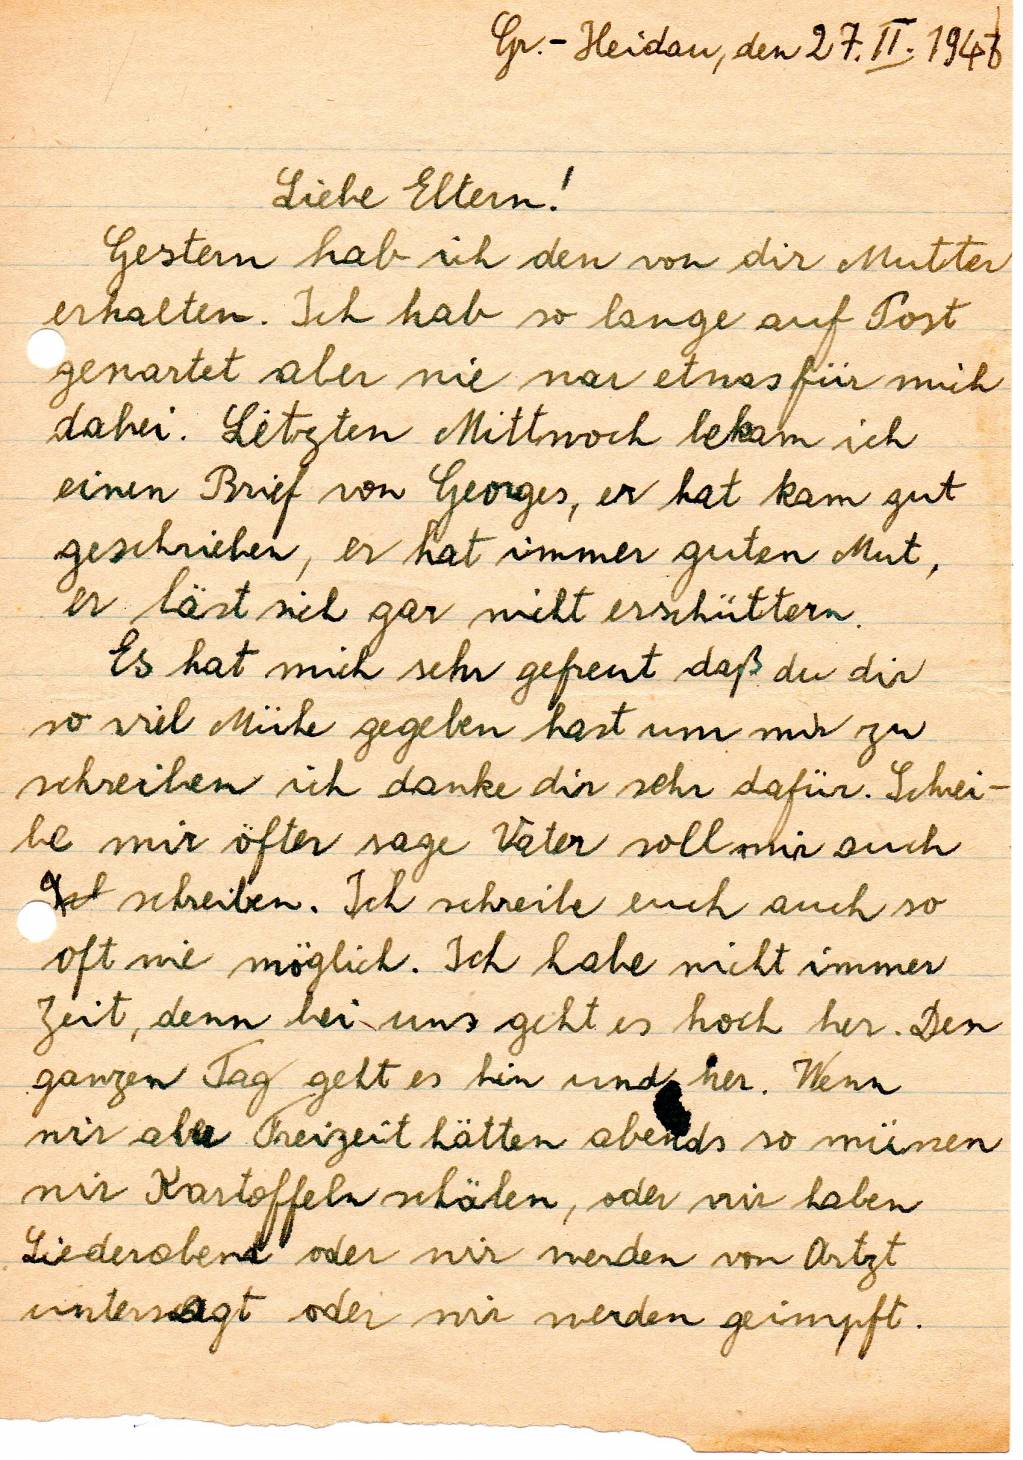 Gr.-Heidau, den 27.II.194
Liebe Eltern!
Gestern hab ich den von dir Mutter
erhalten. Ich hab so lange auf Post
gewartet aber nie war etwas für mich
dabei. Letzten Mittwoch bekam ich
einen Brief von Georges, er hat kam gut
geschrieben, er hat immer guten Mut,
er läst sich gar nicht erschüttern.
Es hat mich sehr gefreut daß du dir
so viel Mühe gegeben hast um mir zu
schreiben ich danke dir sehr dafür. Schrei-
be mir öfter sage Vater soll mir auch
schreiben. Ich schreibe euch auch so
oft wie möglich. Ich habe nicht immer
Zeit, denn bei uns geht es hoch her. Den
ganzen Tag geht es hin und her. Wenn
wir aber Freizeit hätten abends so müssen
wir Kartoffeln schälen, oder wir haben
Liederabend oder wir werden von Artzt
untersagt oder wir werden geimpft.